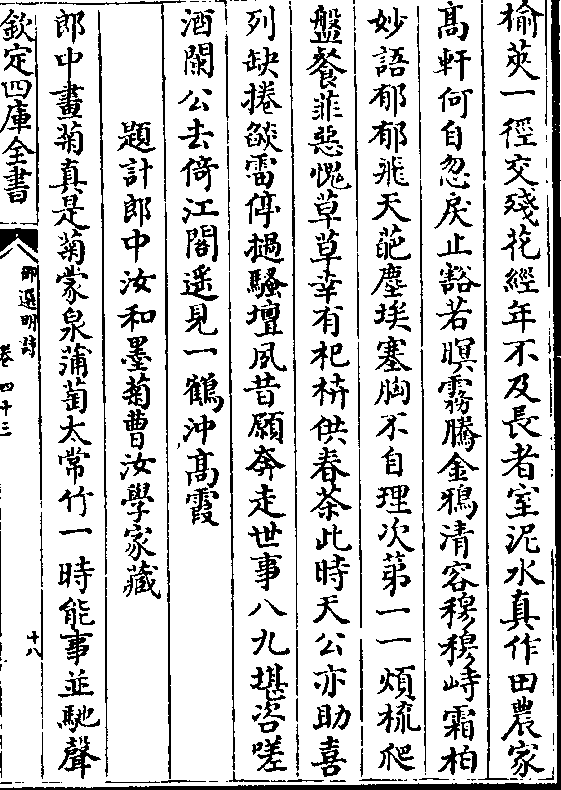 榆莢一徑交殘花經年不及長者室泥水真作田農家
高軒何自忽戾止豁若暝霧騰金鴉清容穆穆峙霜柏
妙語郁郁飛天葩塵埃塞胸不自理次第一一煩梳爬
盤餐菲惡愧草草幸有杞枿供春茶此時天公亦助喜
列缺捲燄雷停撾騷壇夙昔願奔走世事八九堪咨嗟
酒闌公去倚江閣遥見一鶴沖高霞
題計郎中汝和墨菊曹汝學家藏
郎中畫菊真是菊蒙泉蒲萄太常竹一時能事並馳聲
欽定四庫全書
御選明詩
卷四十三
十八